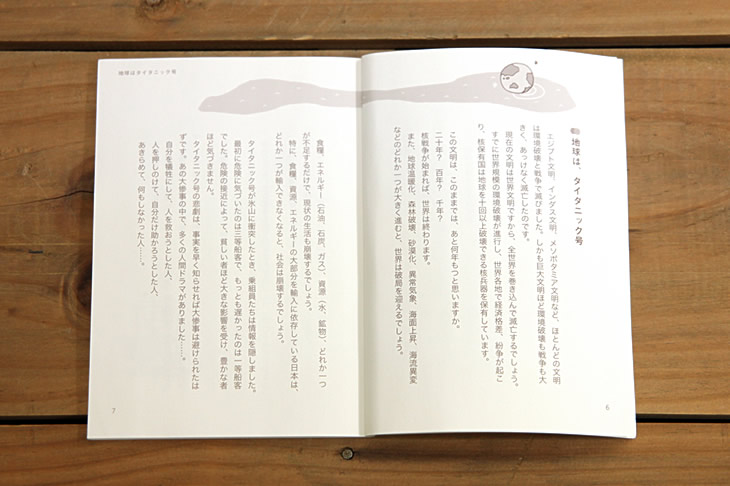 地球は、タイタニック号
エジプト文明、インダス文明、メソポタミア文明など、ほとんどの文明
は環境破壊と戦争で滅びました。しかも巨大文明ほど環境破壊も戦争も大
きく、あっけなく滅亡したのです。
現在の文明は世界文明ですから、全世界を巻き込んで滅亡するでしょう。
すでに世界規模の環境破壊が進行し、世界各地で経済格差、紛争が起こ
り、核保有国は地球を十回以上破壊できる核兵器を保有しています。
この文明は、このままでは、あと何年もつと思いますか。
二十年？ 百年？ 千年？
核戦争が始まれば、世界は終わります。
また、地球温暖化、森林破壊、砂漠化、異常気象、海面上昇、海流異変
などのどれか一つが大きく進むと、世界は破局を迎えるでしょう。
6
地球はタイタニック号
食糧、エネルギー（石油、石炭、ガス）、資源（水、鉱物）、どれか一つ
が不足するだけで、現状の生活も崩壊するでしょう。
特に、食糧、資源、エネルギーの大部分を輸入に依存している日本は、
どれか一つが輸入できなくなると、社会は崩壊するでしょう。
タイタニック号が氷山に衝突したとき、乗組員たちは情報を隠しました。
最初に危険に気づいたのは三等船客で、もっとも遅かったのは一等船客
でした。危険の接近によって、貧しい者ほど大きな影響を受け、豊かな者
ほど気づきません。
タイタニック号の悲劇は、事実を早く知らせれば大惨事は避けられたは
ずです。あの大惨事の中で、多くの人間ドラマがありました……。
自分を犠牲にして、人を救おうとした人、
人を押しのけて、自分だけ助かろうとした人、
あきらめて、何もしなかった人……。
7